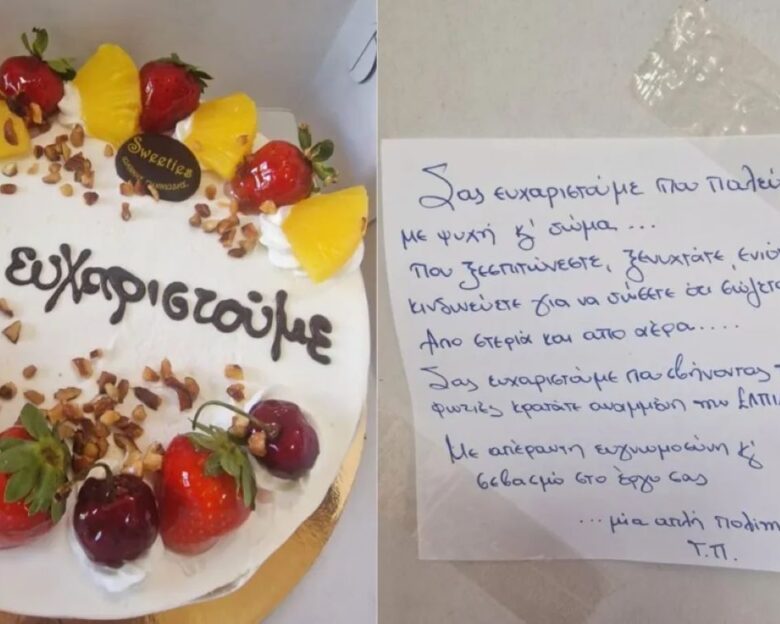 Sweeties
ευχαριστούμε
Σας ευχαριστούμε που παλεύ
με ψυχή κ' σώμα...
που ξεσπιτώνεστε, ξενυχτάτε, ενίο
κινδυνεύετε για να σώσετε ότι σώζετα
Από στεριά και απο αέρα....
Σας ευχαριστούμε που σβήνοντας τ
φωτιές κρατάτε αναμμένη την ΕΛΠΙΔ
Με απέραντη ευγνωμοσύνη κ'
σεβασμό στο έργο σας
...μία απλή πολίτη
Τ.Π.